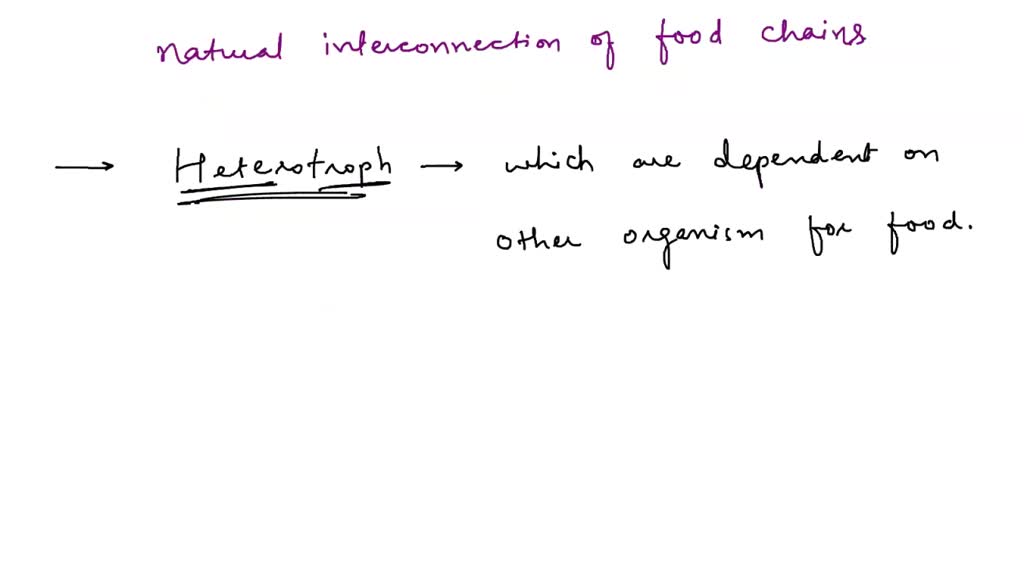 natural interconnection of food chains
→ Heterotroph → which are dependent on
other organism for food.